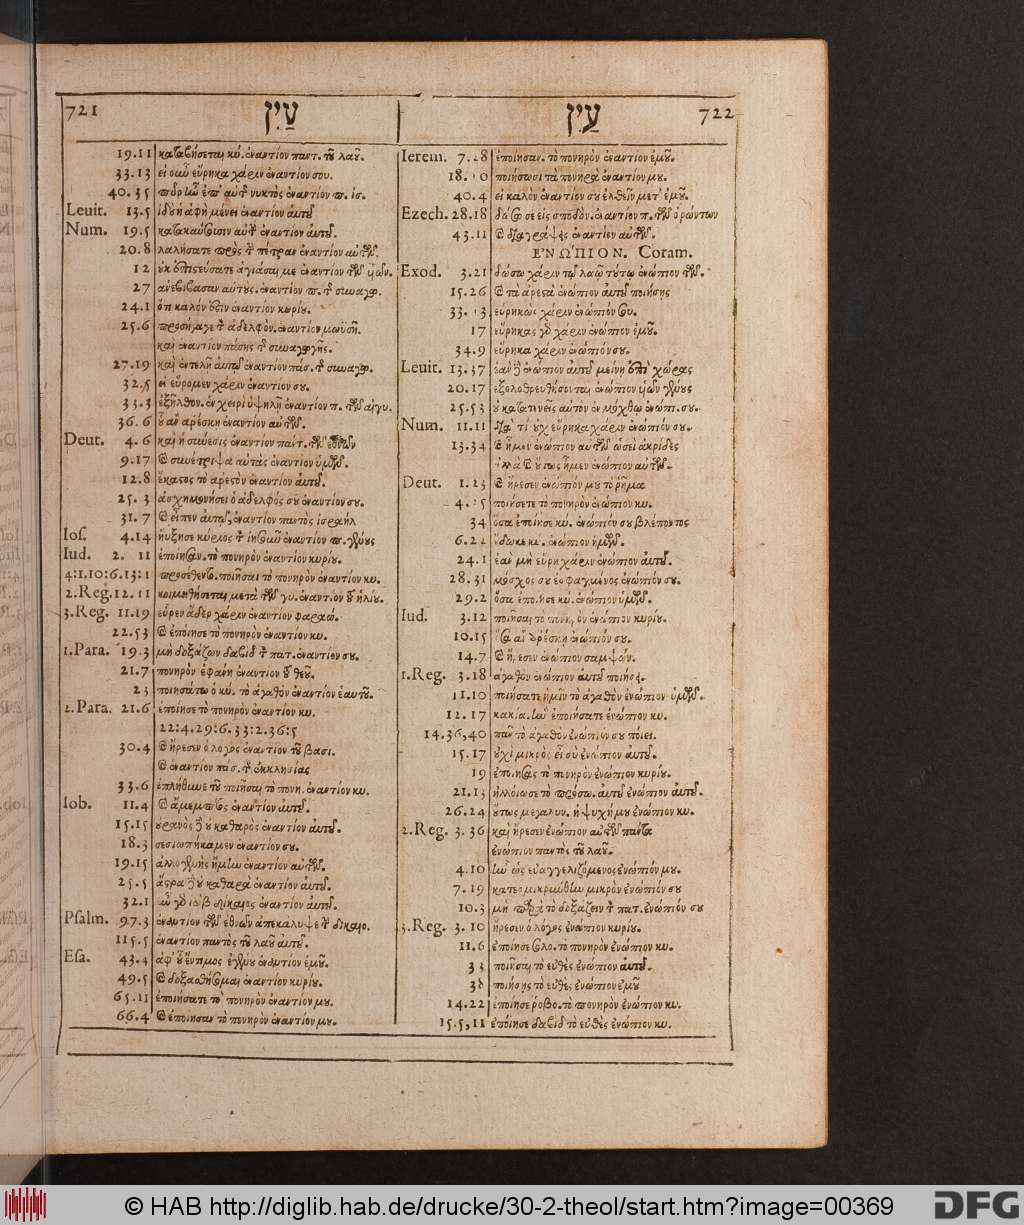 721 עַיִן
19.11 ἐναντίον παντ. τοῦ λαοῦ.
33.13 εἰ οὖν εὕρηκα χάριν ἐναντίον σου.
40.35
Leuit. 13.5 ἰδοὺ ἡ ἁφὴ μένει ἐναντίον αὐτοῦ
Num. 19.5 κατακαύσουσιν αὐτὴν ἐναντίον αὐτοῦ.
20.8 λαλήσατε πρὸς τ πέτραν ἐναντίον αὐτῶν.
12 οὐκ ἐπιστεύσατε ἁγιάσαι με ἐναντίον τῶν υἱῶν.
27 ἀνεβίβασαν αὐτοὺς. ἐναντίον π. τ συναγω.
24.1 ὅτι καλόν ἐστιν ἐναντίον κυρίου.
25.6 προσήγαγε τ ἀδελφὸν. ἐναντίον μωϋσῆ.
καὶ ἐναντίον πάσης τ συναγωγῆς.
27.19 καὶ ἐντελῆ αὐτῷ ἐναντίον πάσ. τ συναγω.
32.5 εἰ εὕρομεν χάριν ἐναντίον σου.
33.3 ἐξῆλθον. ἐν χειρὶ ὑψηλῇ ἐναντίον π. τῶν αἰγυ.
36.6 οὗ ἂν ἀρέσκῃ ἐναντίον αὐτῶν.
Deut. 4.6 καὶ ἡ σύνεσις ἐναντίον παντ. τῶν ἐθνῶν
9.17 καὶ συνέτριψα αὐτὰς ἐναντίον ὑμῶν.
12.8 ἕκαστος τὸ ἀρεστὸν ἐναντίον αὐτοῦ.
25.3 ἀσχημονήσει ὁ ἀδελφός σου ἐναντίον σου.
31.7 καὶ εἶπεν αὐτῷ, ἐναντίον παντὸς ἰσραήλ
Ios. 4.14 ηὔξησε κύριος τ ἰησοῦν ἐναντίον π. γένους
Iud. 2. 11 ἐποίησαν. τὸ πονηρὸν ἐναντίον κυρίου.
4:1.10:6.13:1 ποιῆσαι τὸ πονηρὸν ἐναντίον κυ.
2.Reg. 12.11 κοιμηθήσεται μετὰ τῶν γυ. ἐναντίον τοῦ ἡλίου.
3.Reg. 11.19 εὗρεν ἄδερ χάριν ἐναντίον φαραώ.
22.53 καὶ ἐποίησε τὸ πονηρὸν ἐναντίον κυ.
1.Para. 19.3 μὴ δοξάζων δαβὶδ τ πατ. ἐναντίον σου.
21.7 πονηρὸν ἐφάνη ἐναντίον τοῦ θεοῦ.
23 ποιησάτω ὁ κύ. τὸ ἀγαθὸν ἐναντίον ἑαυτοῦ.
2.Para. 21.6 ἐποίησε τὸ πονηρὸν ἐναντίον κυ.
22:4.29:6.33:2.36:5
30.4 καὶ ἤρεσεν ὁ λόγος ἐναντίον τοῦ βασι.
καὶ ἐναντίον πάσ. τ ἐκκλησίας
33.6 ἐπλήθυνε τοῦ ποιῆσαι τὸ πονη. ἐναντίον κυ.
Iob. 11.4 καὶ ἄμεμπτος ἐναντίον αὐτοῦ.
15.15 οὐρανὸς δὲ οὐ καθαρὸς ἐναντίον αὐτοῦ.
18.3 σεσιωπήκαμεν ἐναντίον σου.
19.15 ἀλλογενὴς ἤμην ἐναντίον αὐτῶν.
25.5 ἄστρα δὲ οὐ καθαρὰ ἐναντίον αὐτοῦ.
32.1 ἰὼβ δίκαιος ἐναντίον αὐτῶν.
Psalm. 97.3 ἐναντίον τῶν ἐθνῶν ἀπεκάλυψε τ δικαιο.
115.5 ἐναντίον παντὸς τοῦ λαοῦ αὐτοῦ.
Esa. 43.4 ἀφ' οὗ ἔντιμος ἐγένου ἐναντίον ἐμοῦ.
49.5 καὶ δοξασθήσομαι ἐναντίον κυρίου.
65.11 ἐποιήσατε τὸ πονηρὸν ἐναντίον μου.
66.4 καὶ ἐποίησαν τὸ πονηρὸν ἐναντίον μου.
עַיִן 722
Ierem. 7.28 ἐποίησαν. τὸ πονηρὸν ἐναντίον ἐμοῦ.
18. 10 ποιήσωσι τὰ πονηρὰ ἐναντίον μου.
40.4 εἰ καλὸν ἐναντίον σου ἐλθεῖν μετ' ἐμοῦ.
Ezech. 28.18 δώσω σε εἰς σποδὸν. ἐναντίον π. τῶν ὁρώντων
43.11 καὶ διαγράψεις ἐναντίον αὐτῶν.
ΕΝΩΠΙΟΝ. Coram.
Exod. 3.21 δώσω χάριν τῷ λαῷ τούτῳ ἐνώπιον τῶν.
15.26 καὶ τὰ ἀρεστὰ ἐνώπιον αὐτοῦ ποιήσῃς
33. 13 εὑρηκὼς χάριν ἐνώπιον σου.
17 εὕρηκας γὰρ χάριν ἐνώπιον ἐμοῦ.
34.9 εὕρηκα χάριν ἐνώπιόν σου.
Leuit. 13.37 ἐὰν δὲ ἐνώπιον αὐτοῦ μείνῃ ἐπὶ χώρας
20.17 ἐξολοθρευθήσονται ἐνώπιον υἱῶν γένους
25.53 οὐ κατατενεῖς αὐτὸν ἐν μόχθῳ ἐνώπι. σου.
Num. 11.11 διὰ τί οὐχ εὕρηκα χάριν ἐνώπιόν σου.
13.34 καὶ ἦμεν ἐνώπιον αὐτῶν ὡσεὶ ἀκρίδες
ἀλλὰ καὶ οὕτως ἦμεν ἐνώπιον αὐτῶν.
Deut. 1.23 καὶ ἤρεσεν ἐνώπιόν μου τὸ ῥῆμα
4.25 ποιήσητε τὸ πονηρὸν ἐνώπιον κυ.
34 ὅσα ἐποίησε κύ. ἐνώπιόν σου βλέποντος
6.22 ἔδωκε κύ. ἐνώπιον ἡμῶν.
24.1 ἐὰν μὴ εὕρῃ χάριν ἐνώπιον αὐτοῦ.
28.31 μόσχος σου ἐσφαγμένος ἐνώπιόν σου.
29.2 ὅσα ἐποίησε κύ. ἐνώπιον ὑμῶν.
Iud. 3.12 ποιῆσαι τὸ πονηρὸν ἐνώπιον κυρίου.
10.15 ἀρέσκῃ ἐνώπιόν σου.
14.7 καὶ ἤρεσεν ἐνώπιον σαμψών.
1.Reg. 3.18 ἀγαθὸν ἐνώπιον αὐτοῦ ποιήσει.
11.10 ποιήσατε ἡμῖν τὸ ἀγαθὸν ἐνώπιον ὑμῶν.
12.17 κακία. ἣν ἐποιήσατε ἐνώπιον κυ.
14.36,40 πᾶν τὸ ἀγαθὸν ἐνώπιόν σου ποίει.
15.17 οὐχὶ μικρὸς εἶ σὺ ἐνώπιον αὐτοῦ.
19 ἐποίησας τὸ πονηρὸν ἐνώπιον κυρίου.
21.13 ἠλλοίωσε τὸ πρόσω. αὐτοῦ ἐνώπιον αὐτοῦ.
26.24 οὕτως μεγαλυν. ἡ ψυχή μου ἐνώπιον κυ.
2.Reg. 3.36 καὶ ἤρεσεν ἐνώπιον αὐτῶν πάντα
ἐνώπιον παντὸς τοῦ λαοῦ.
4.10 ἦν ὡς εὐαγγελιζόμενος ἐνώπιόν μου.
7.19 κατεσμικρύνθην μικρὸν ἐνώπιόν σου
10.3 μὴ παρὰ τὸ δοξάζειν τ πατ. ἐνώπιόν σου
3.Reg. 3.10 ἤρεσεν ὁ λόγος ἐνώπιον κυρίου.
11.6 ἐποίησε σολο. τὸ πονηρὸν ἐνώπιον κυ.
33 ποιῆσαι τὸ εὐθὲς ἐνώπιον αὐτοῦ.
38 ποιήσῃς τὸ εὐθὲς ἐνώπιον ἐμοῦ
14.22 ἐποίησε ῥοβο. τὸ πονηρὸν ἐνώπιον κυ.
15.5,11 ἐποίησε δαβὶδ τὸ εὐθὲς ἐνώπιον κυ.
© HAB http://diglib.hab.de/drucke/30-2-theol/start.htm?image=00369
DFG